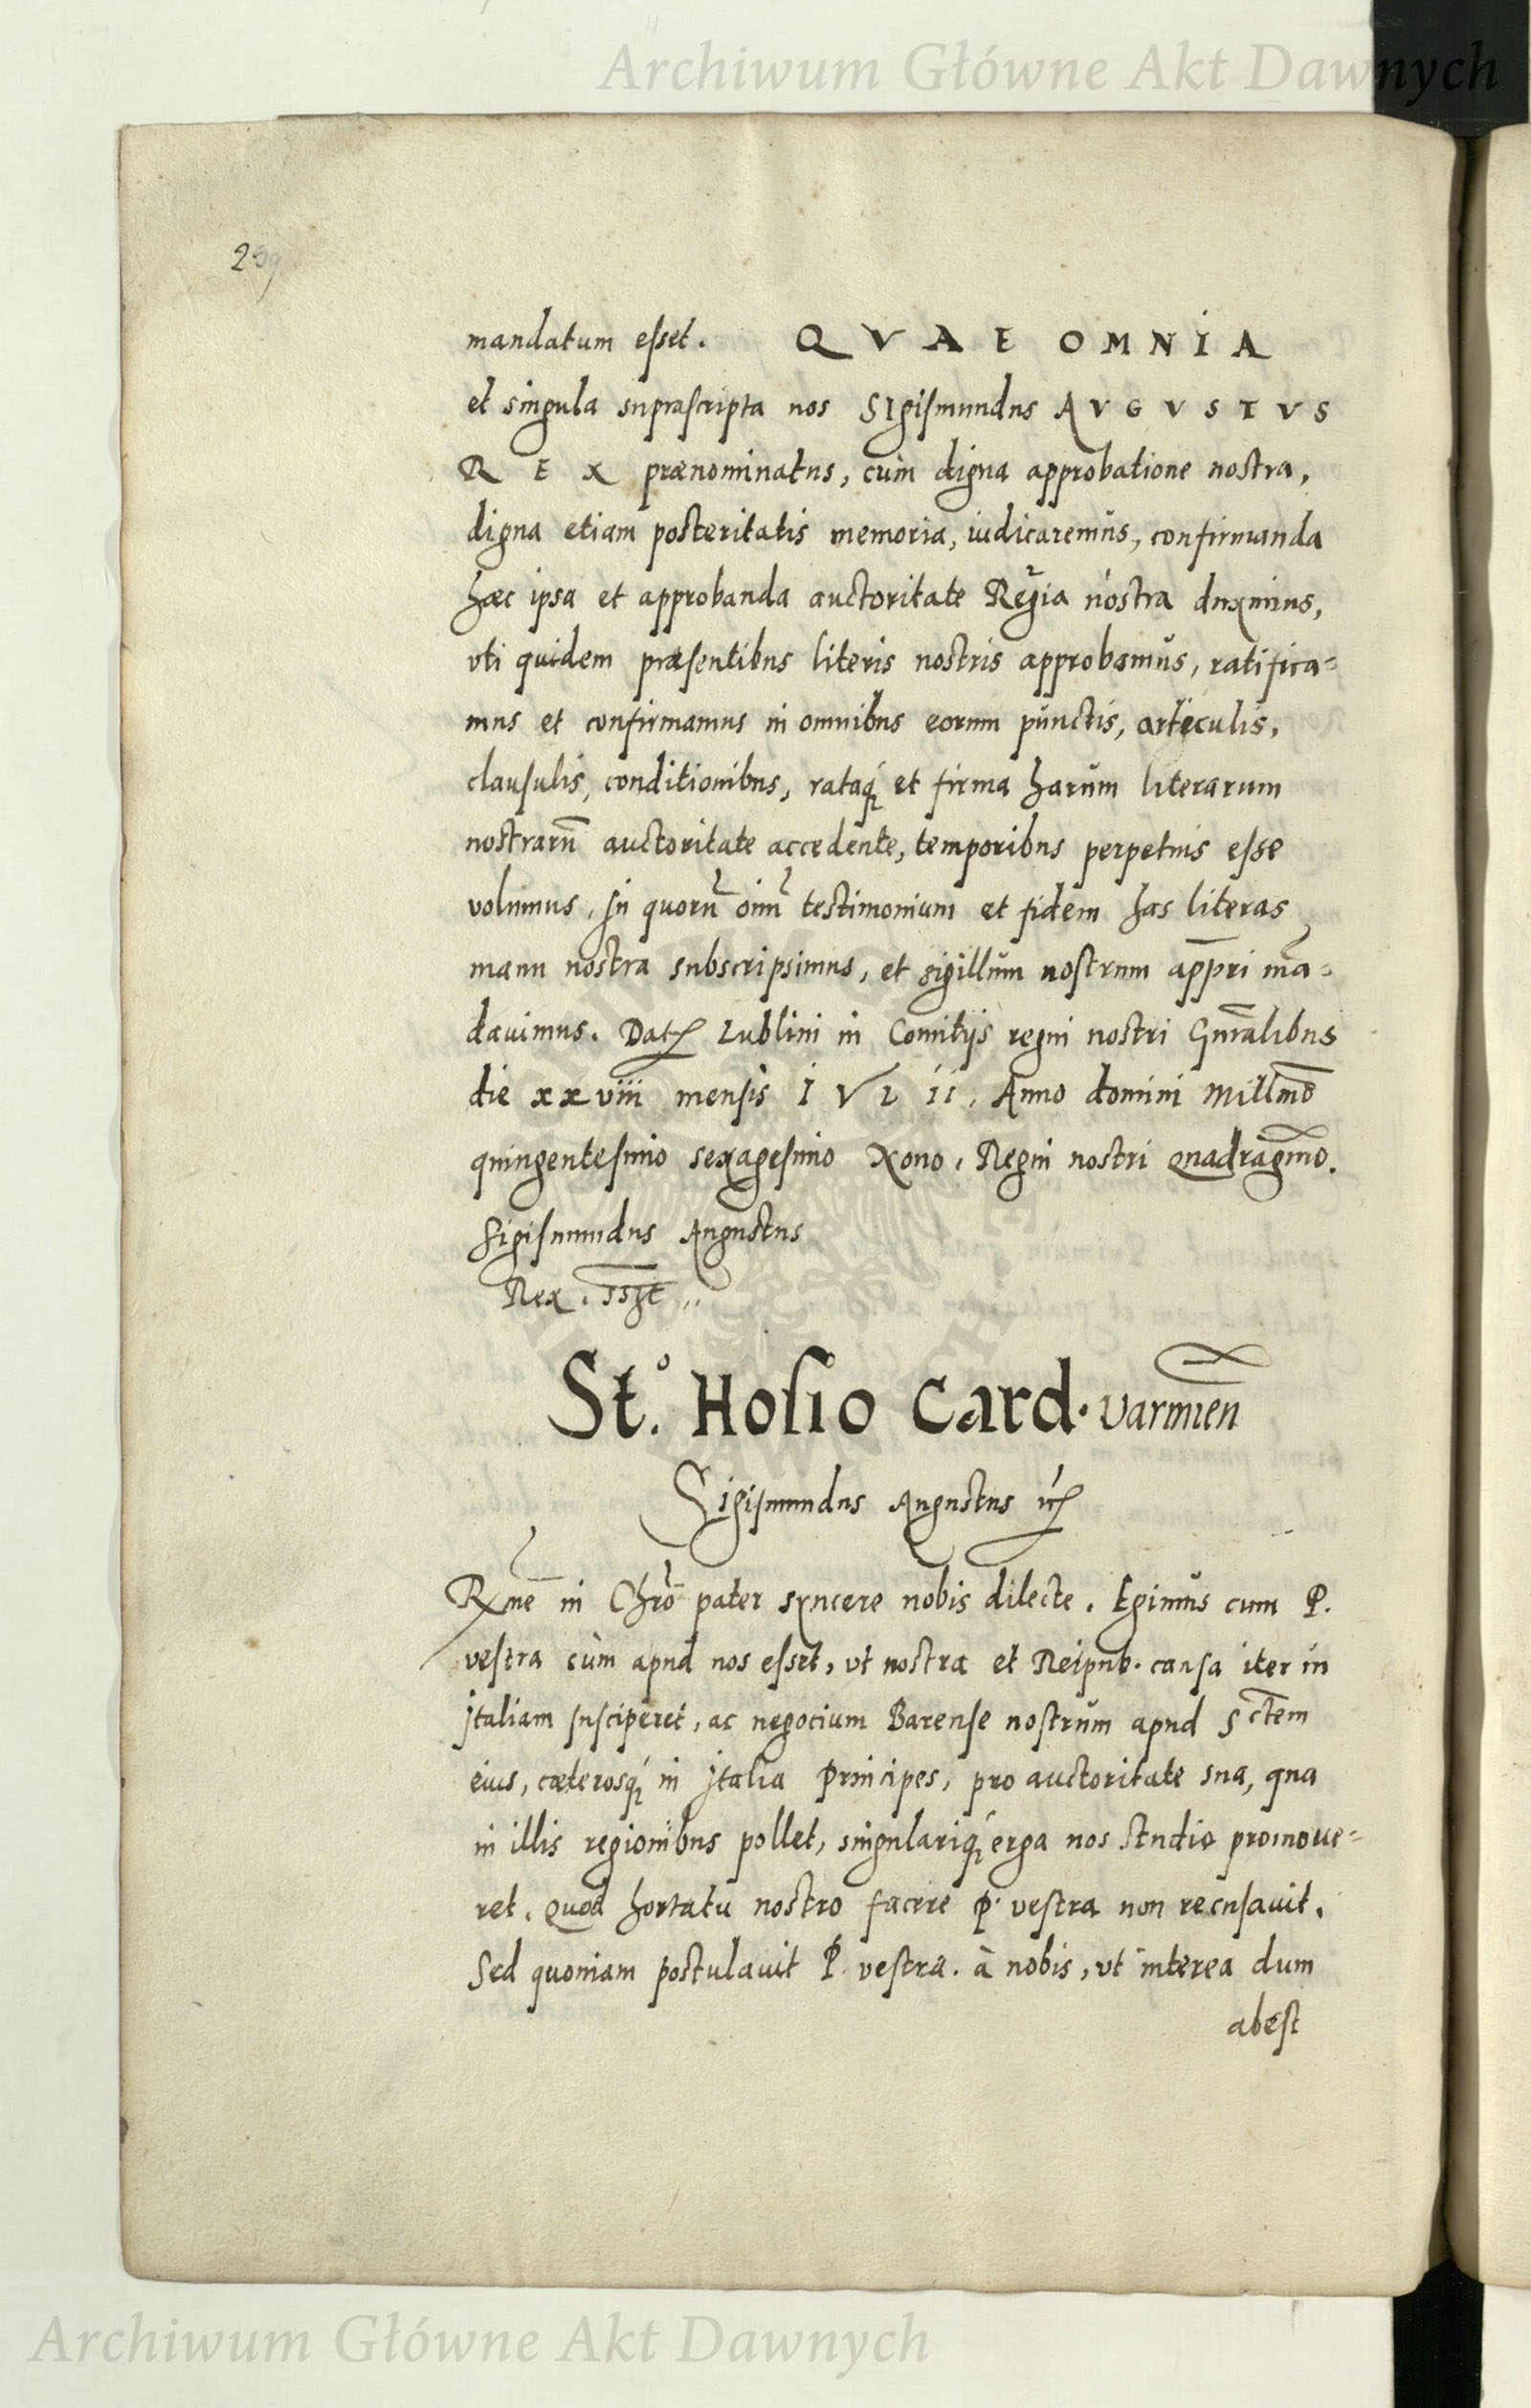 Archiwum Główne Akt Dawnych
mandatum esset. QVAE OMNIA
et singula suprascripta nos Sigismundus AVGVSTVS
REX prænominatus, cùm digna approbatione nostra,
digna etiam posteritatis memoria, iudicaremus, confirmanda
hæc ipsa et approbanda auctoritate Regia nostra duximus,
vti quidem præsentibus literis nostris approbamus, ratifica=
mus et confirmamus in omnibus eorum punctis, articulis,
clausulis, conditionibus, rataq́ et firma harum literarum
nostrarū auctoritate accedente, temporibus perpetuis esse
volumus, In quorū oīm testimonium et fidem has literas
manu nostra subscripsimus, et sigillum nostrum appri mā=
dauimus. Dat Lublini in Comitijs regni nostri Gnralibus
die xxviii mensis IVLII, Anno domini Millmo
quingentesimo sexagesimo Nono, Regni nostri Quadragmo.
Sigismundus Augustus
Rex. sszt
St.° Hosio Card. Varmien
Sigismundus Augustus
Rxme in Chro pater syncere nobis dilecte. Egimus cum P.
vestra cùm apud nos esset, vt nostra et Reipub. causa iter in
Italiam susciperet, ac negocium Barense nostrum apud Sctem
eius, cæterosq́ in Italia Principes, pro auctoritate sua, qua
in illis regionibus pollet, singulariq́ erga nos studio promoue=
ret. Quod hortatu nostro facere P. vestra non recusauit.
Sed quoniam postulauit P. vestra. à nobis, vt interea dum
abest
Archiwum Główne Akt Dawnych